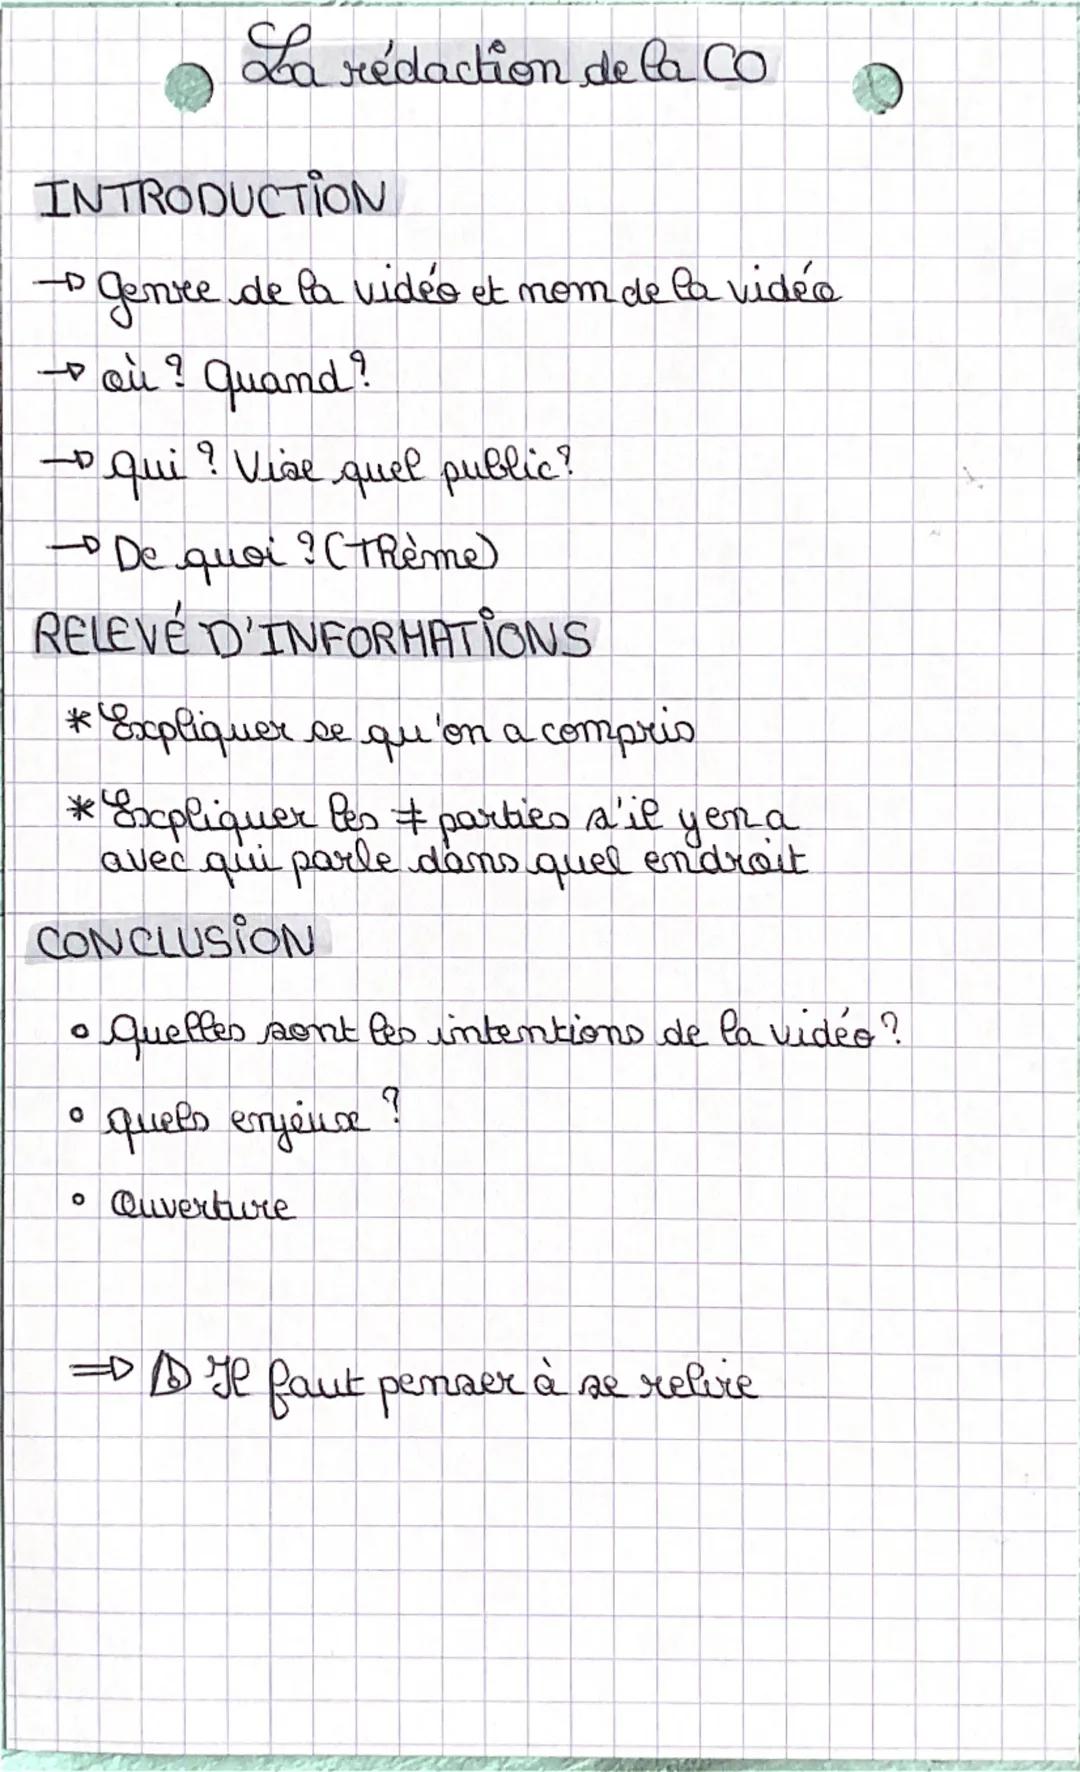 La rédaction de la CO
INTRODUCTION
→ genre de la vidéo et nom de la vidéo
→ où ? Quand ?
→ qui ? Vise quel public ?
→ De quoi ? (thème)
RELEVÉ D'INFORMATIONS
* Expliquer ce qu'on a compris
* Expliquer les ≠ parties s'il y en a
avec qui parle dans quel endroit
CONCLUSION
• Quelles sont les intentions de la vidéo ?
• quels enjeux ?
• Ouverture
⇒ ⚠ Il faut penser à se relire